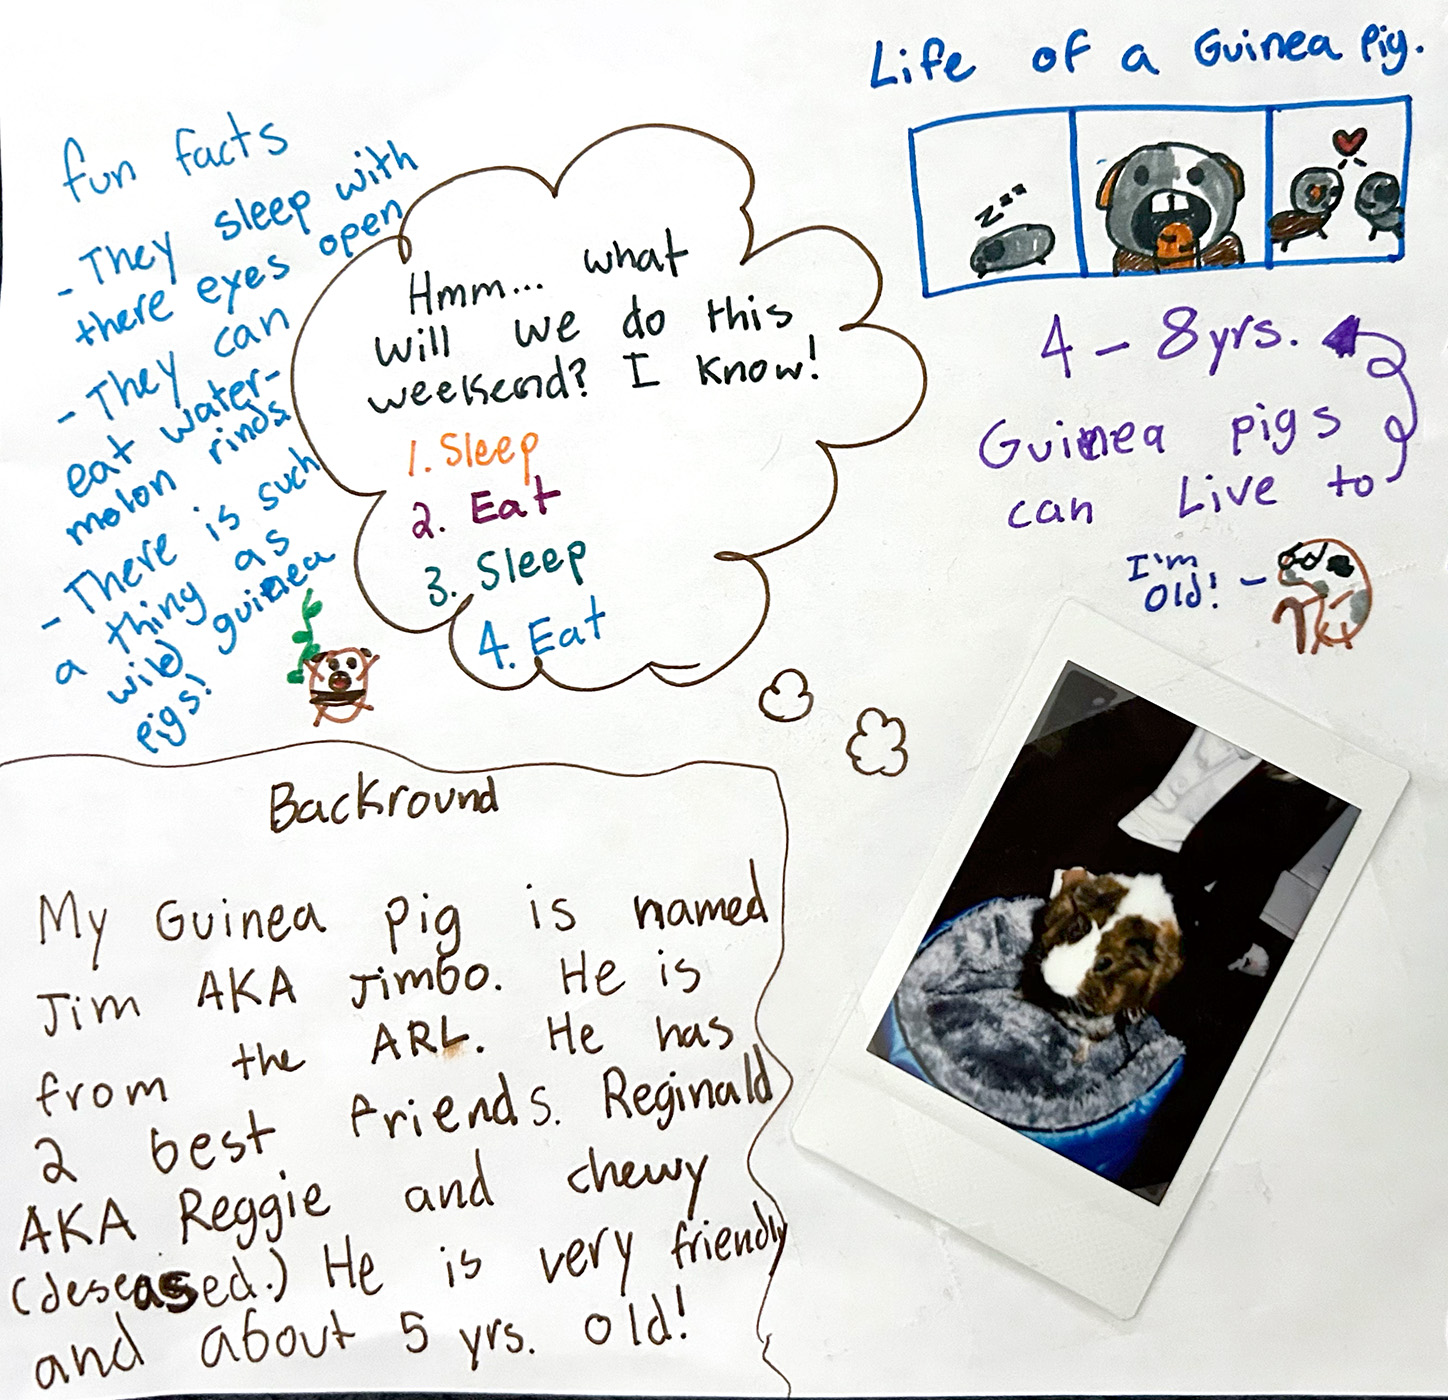 Life of a Guinea Pig.
zzz
4 - 8yrs.
Guinea pigs
can Live to
I'm
Old! -
fun facts
- They sleep with
there eyes open
- They can
eat water-
molon rinds.
- There is such
a thing as
wild guinea
pigs!
Hmm... what
will we do this
weekend? I know!
1. Sleep
2. Eat
3. Sleep
4. Eat
Backround
My Guinea pig is named
Jim AKA Jimbo. He is
from the ARL. He has
2 best friends. Reginald
AKA Reggie and chewy
(deseased.) He is very friendly
and about 5 yrs. old!